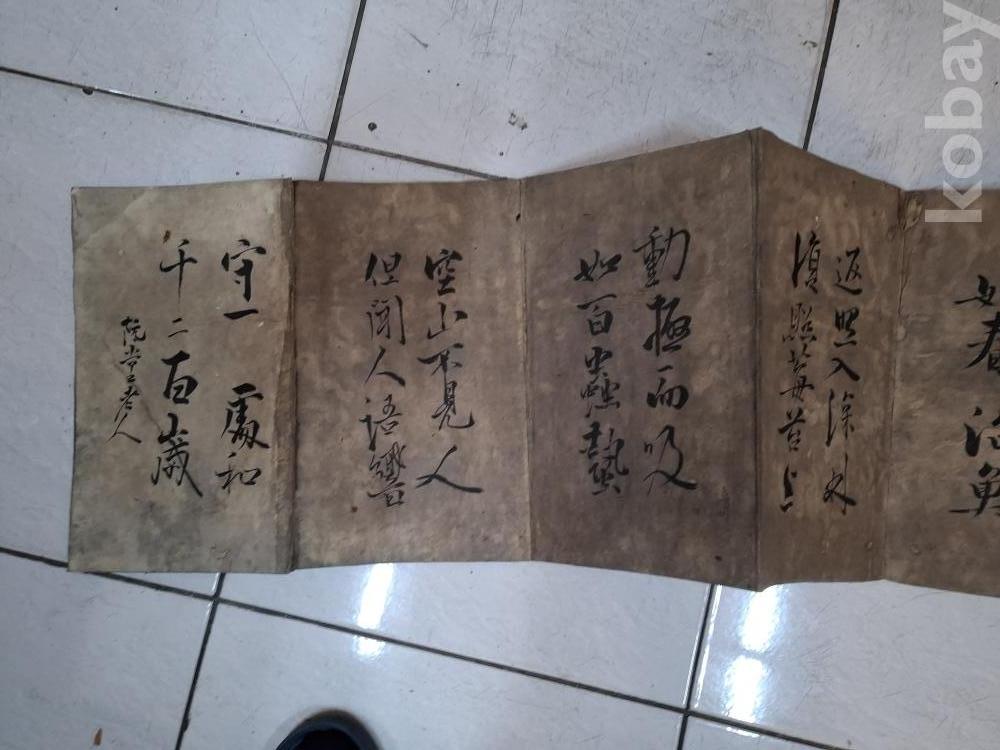 如春沼魚
返照入深林
復照莓苔上
動極而吸
如百蟲蟄
空山不見人
但聞人語響
守一處和
千二百歲
阮堂老人
kobay